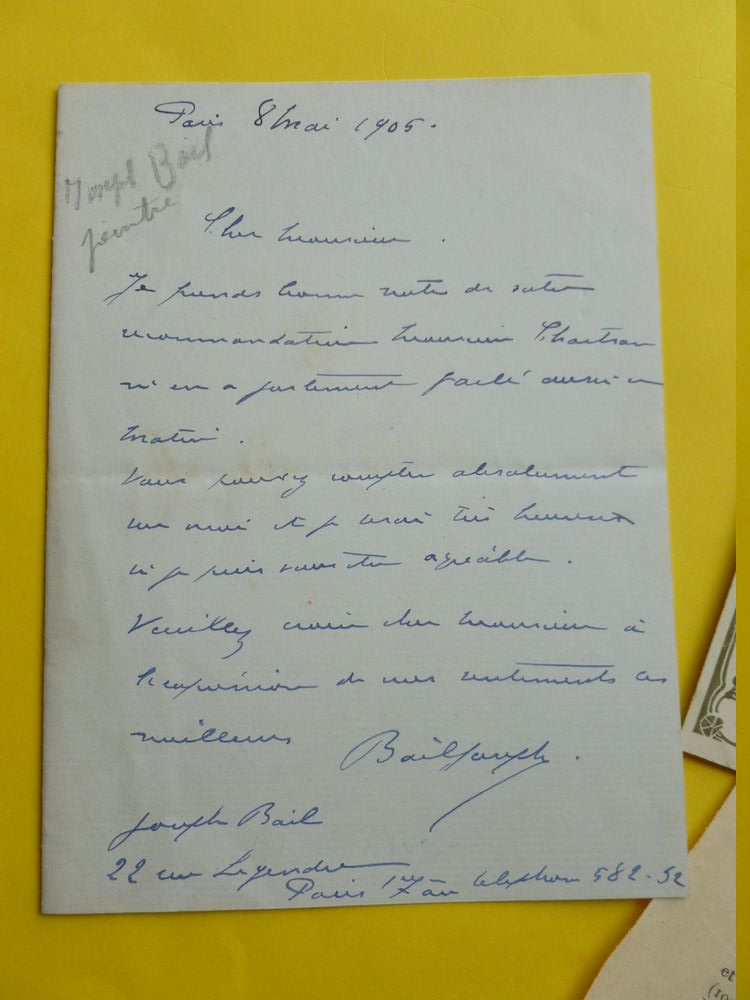 Paris 8 Mai 1905.
Joseph Bail
peintre
Cher Monsieur.
Je prends bonne note de votre
recommandation Monsieur Chartran
m'en a justement parlé aussi ce
matin.
Vous pouvez compter absolument
sur moi et je serai très heureux
si je puis vous être agréable.
Veuillez croire cher Monsieur à
l'expression de mes sentiments les
meilleurs
BailJoseph.
Joseph Bail
22 rue Legendre
Paris 17 telephon 582-52
et
(10